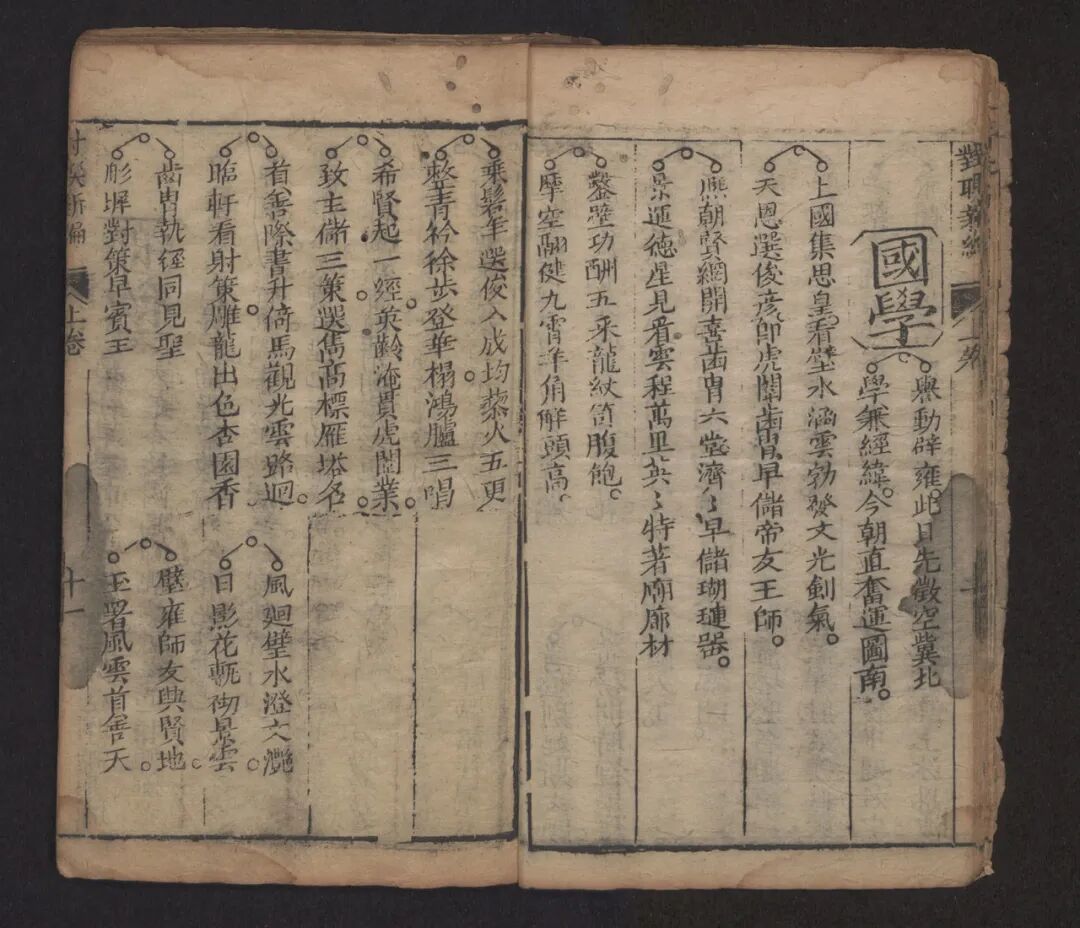 國學
譽動辟雍。此日先徵空冀北
學兼經緯。今朝直奮運圖南。
上國集思皇看壁水涵雲勃發文光劍氣。
天恩選俊彥即虎闈齒胄早儲帝友王師。
熙朝賢網開喜齒胄六堂濟〻早儲瑚璉器。
景運德星見看雲程萬里英〻特著廟廊材
鑿壁功酬五采龍紋笥腹飽。
摩空翮健九霄羊角解頭高。
上卷
乘髫年選俊入成均藜火五更
整青衿徐步登華榻鴻臚三唱
希賢起一經英齡淹貫虎闈業
致主儲三策選雋高標雁塔名
首善際書升倚馬觀光雲路迥
臨軒看射策雕龍出色杏園香
齒胄執經同見聖
彤墀對策早賓王
風迴璧水澄文灔
日影花甎彻景雲
璧雍師友興賢地
玉署風雲首善天
上卷
十一